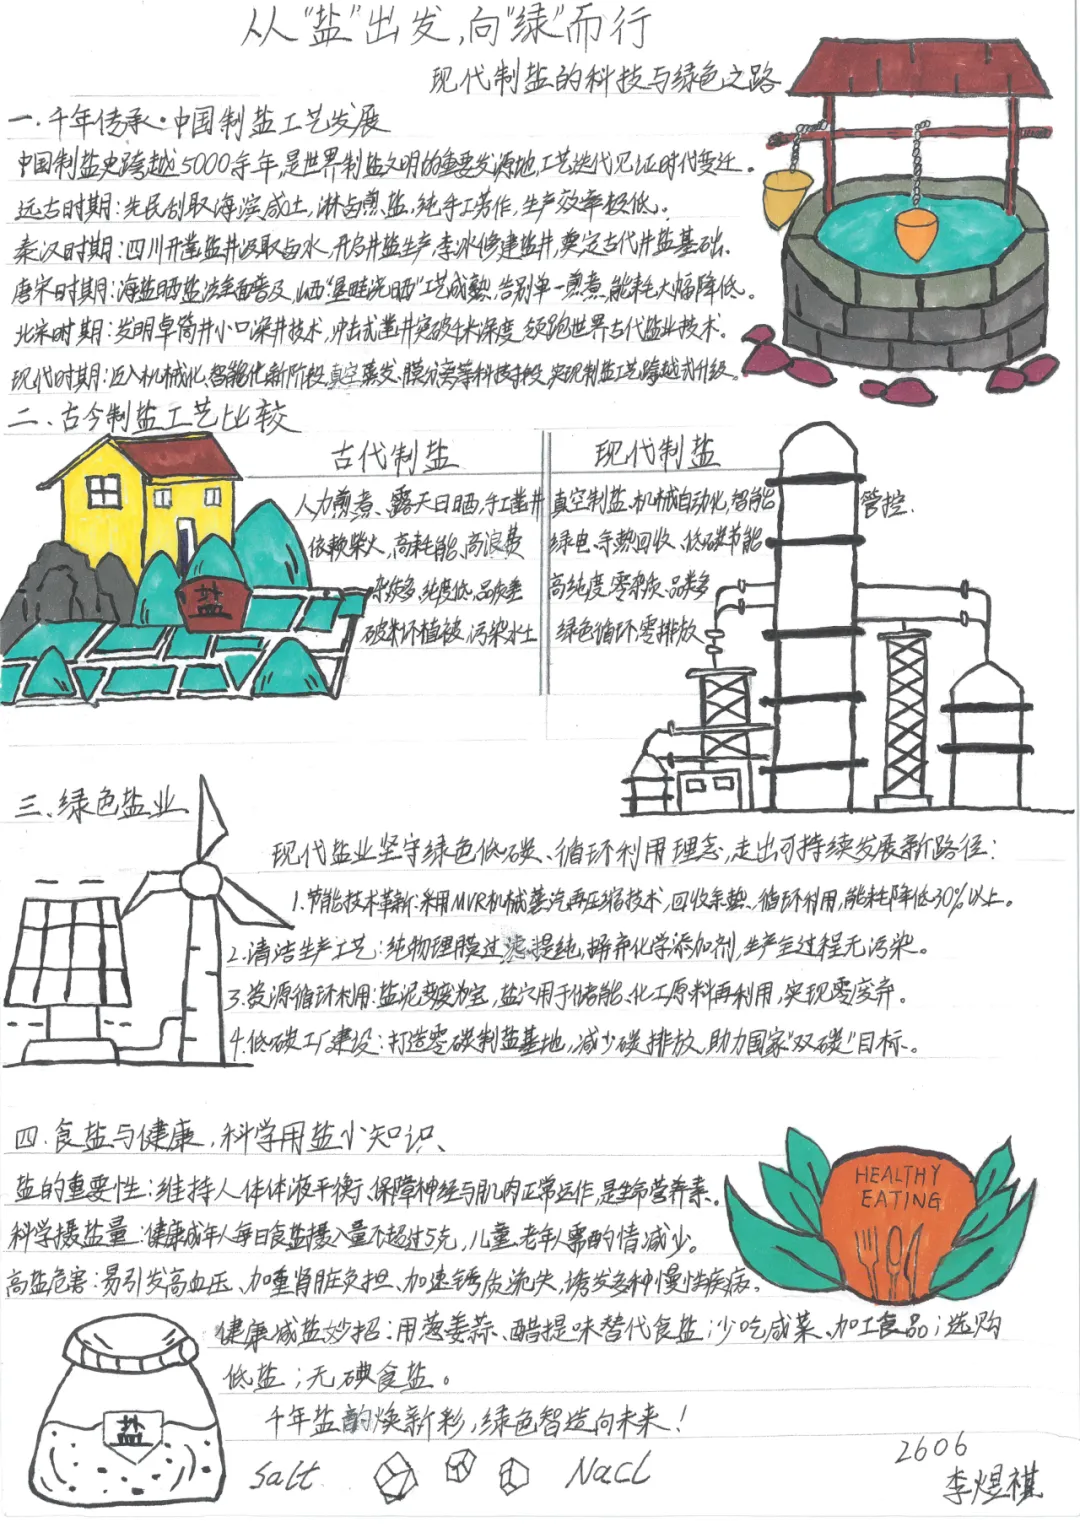 从“盐”出发,向“绿”而行
现代制盐的科技与绿色之路
一.千年传承·中国制盐工艺发展
中国制盐史跨越5000余年,是世界制盐文明的重要发源地,工艺迭代见证时代变迁。
远古时期:先民刮取海滨咸土,淋卤煎盐,纯手工劳作,生产效率极低。
秦汉时期:四川开凿盐井汲取卤水,开启井盐生产,李冰修建盐井,奠定古代井盐基础.
唐宋时期:海盐晒盐法全面普及,山西“垦畦浇晒”工艺成熟,告别单一煎煮,能耗大幅降低。
北宋时期:发明卓筒井小口深井技术,冲击式凿井突破千米深度,领跑世界古代盐业技术。
现代时期:迈入机械化、智能化新阶段,真空蒸发、膜分离等科技手段,实现制盐工艺跨越式升级。
二、古今制盐工艺比较
古代制盐
现代制盐
人力煎煮、露天日晒,手工凿井
真空制盐、机械自动化,智能管控.
依赖柴火,高耗能、高浪费
绿电、余热回收、低碳节能
杂质多,纯度低,品质差
高纯度,零杂质,品类多
破坏植被,污染水土
绿色循环零排放
盐
三、绿色盐业
现代盐业坚守绿色低碳、循环利用理念,走出可持续发展新路径:
1.节能技术革新:采用MVR机械蒸汽再压缩技术,回收余热、循环利用,能耗降低30%以上。
2.清洁生产工艺:纯物理膜过滤提纯,摒弃化学添加剂,生产全过程无污染。
3.资源循环利用:盐泥变废为宝,盐穴用于储能、化工原料再利用,实现零废弃。
4.低碳工厂建设:打造零碳制盐基地,减少碳排放,助力国家“双碳”目标。
四.食盐与健康,科学用盐小知识、
盐的重要性:维持人体体液平衡、保障神经与肌肉正常运作,是生命营养素.
科学摄盐量:健康成年人每日食盐摄入量不超过5克,儿童、老年人需酌情减少。
高盐危害:易引发高血压、加重肾脏负担、加速钙质流失,诱发多种慢性疾病.
HEALTHY
EATING
健康减盐妙招:用葱姜蒜、醋提味替代食盐;少吃咸菜、加工食品;选购
低盐;无碘食盐。
千年盐韵焕新彩,绿色智造向未来!
盐
Salt
NaCl
2606
李煜祺